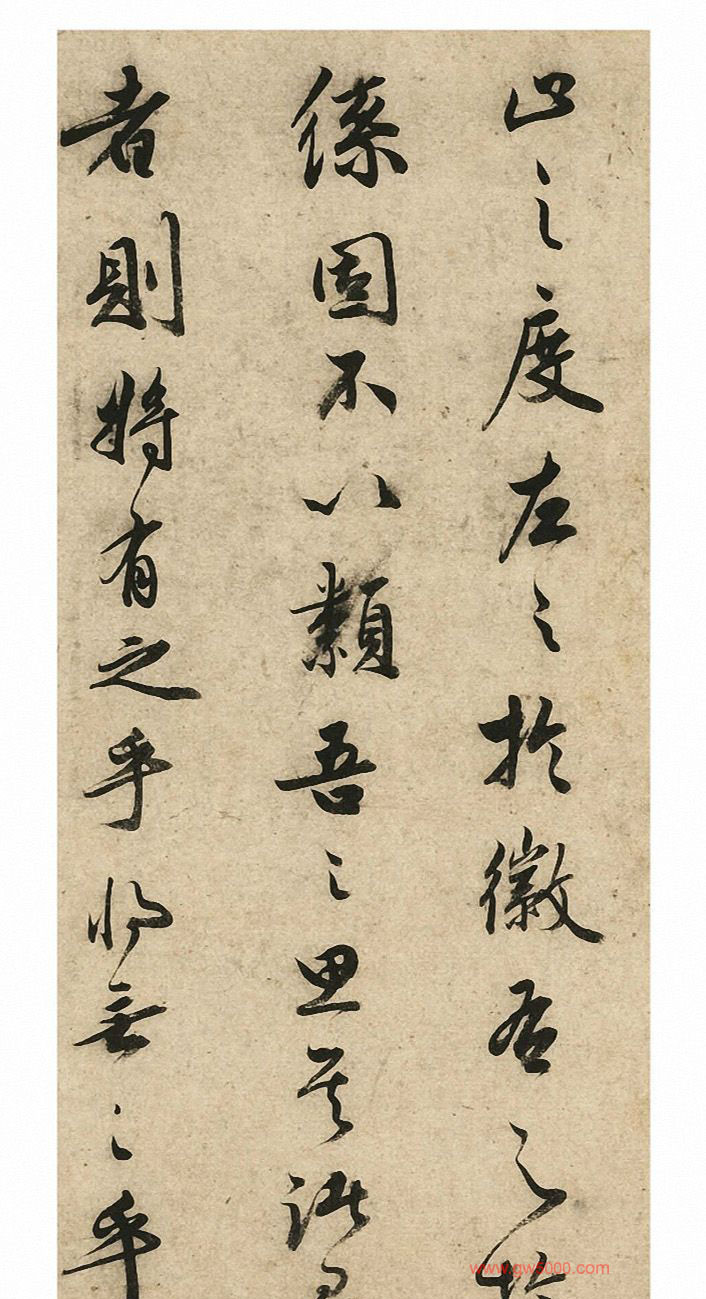 之度左之於徽右之於
固不以類吾之思其
者則將有之乎將無之乎
www.gw5000.com